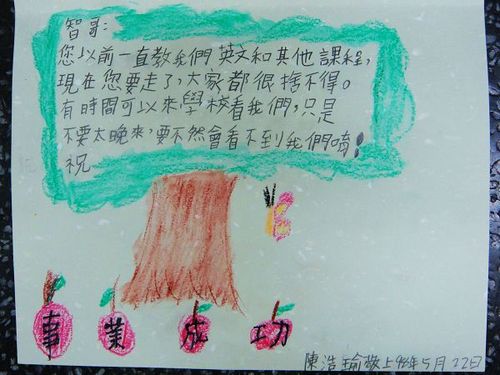 智哥:
您以前一直教我們英文和其他課程,
現在您要走了,大家都很捨不得。
有時間可以來學校看我們,只是
不要太晚來,要不然會看不到我們唷!
祝
事業成功
陳浩瑜敬上94年5月22日